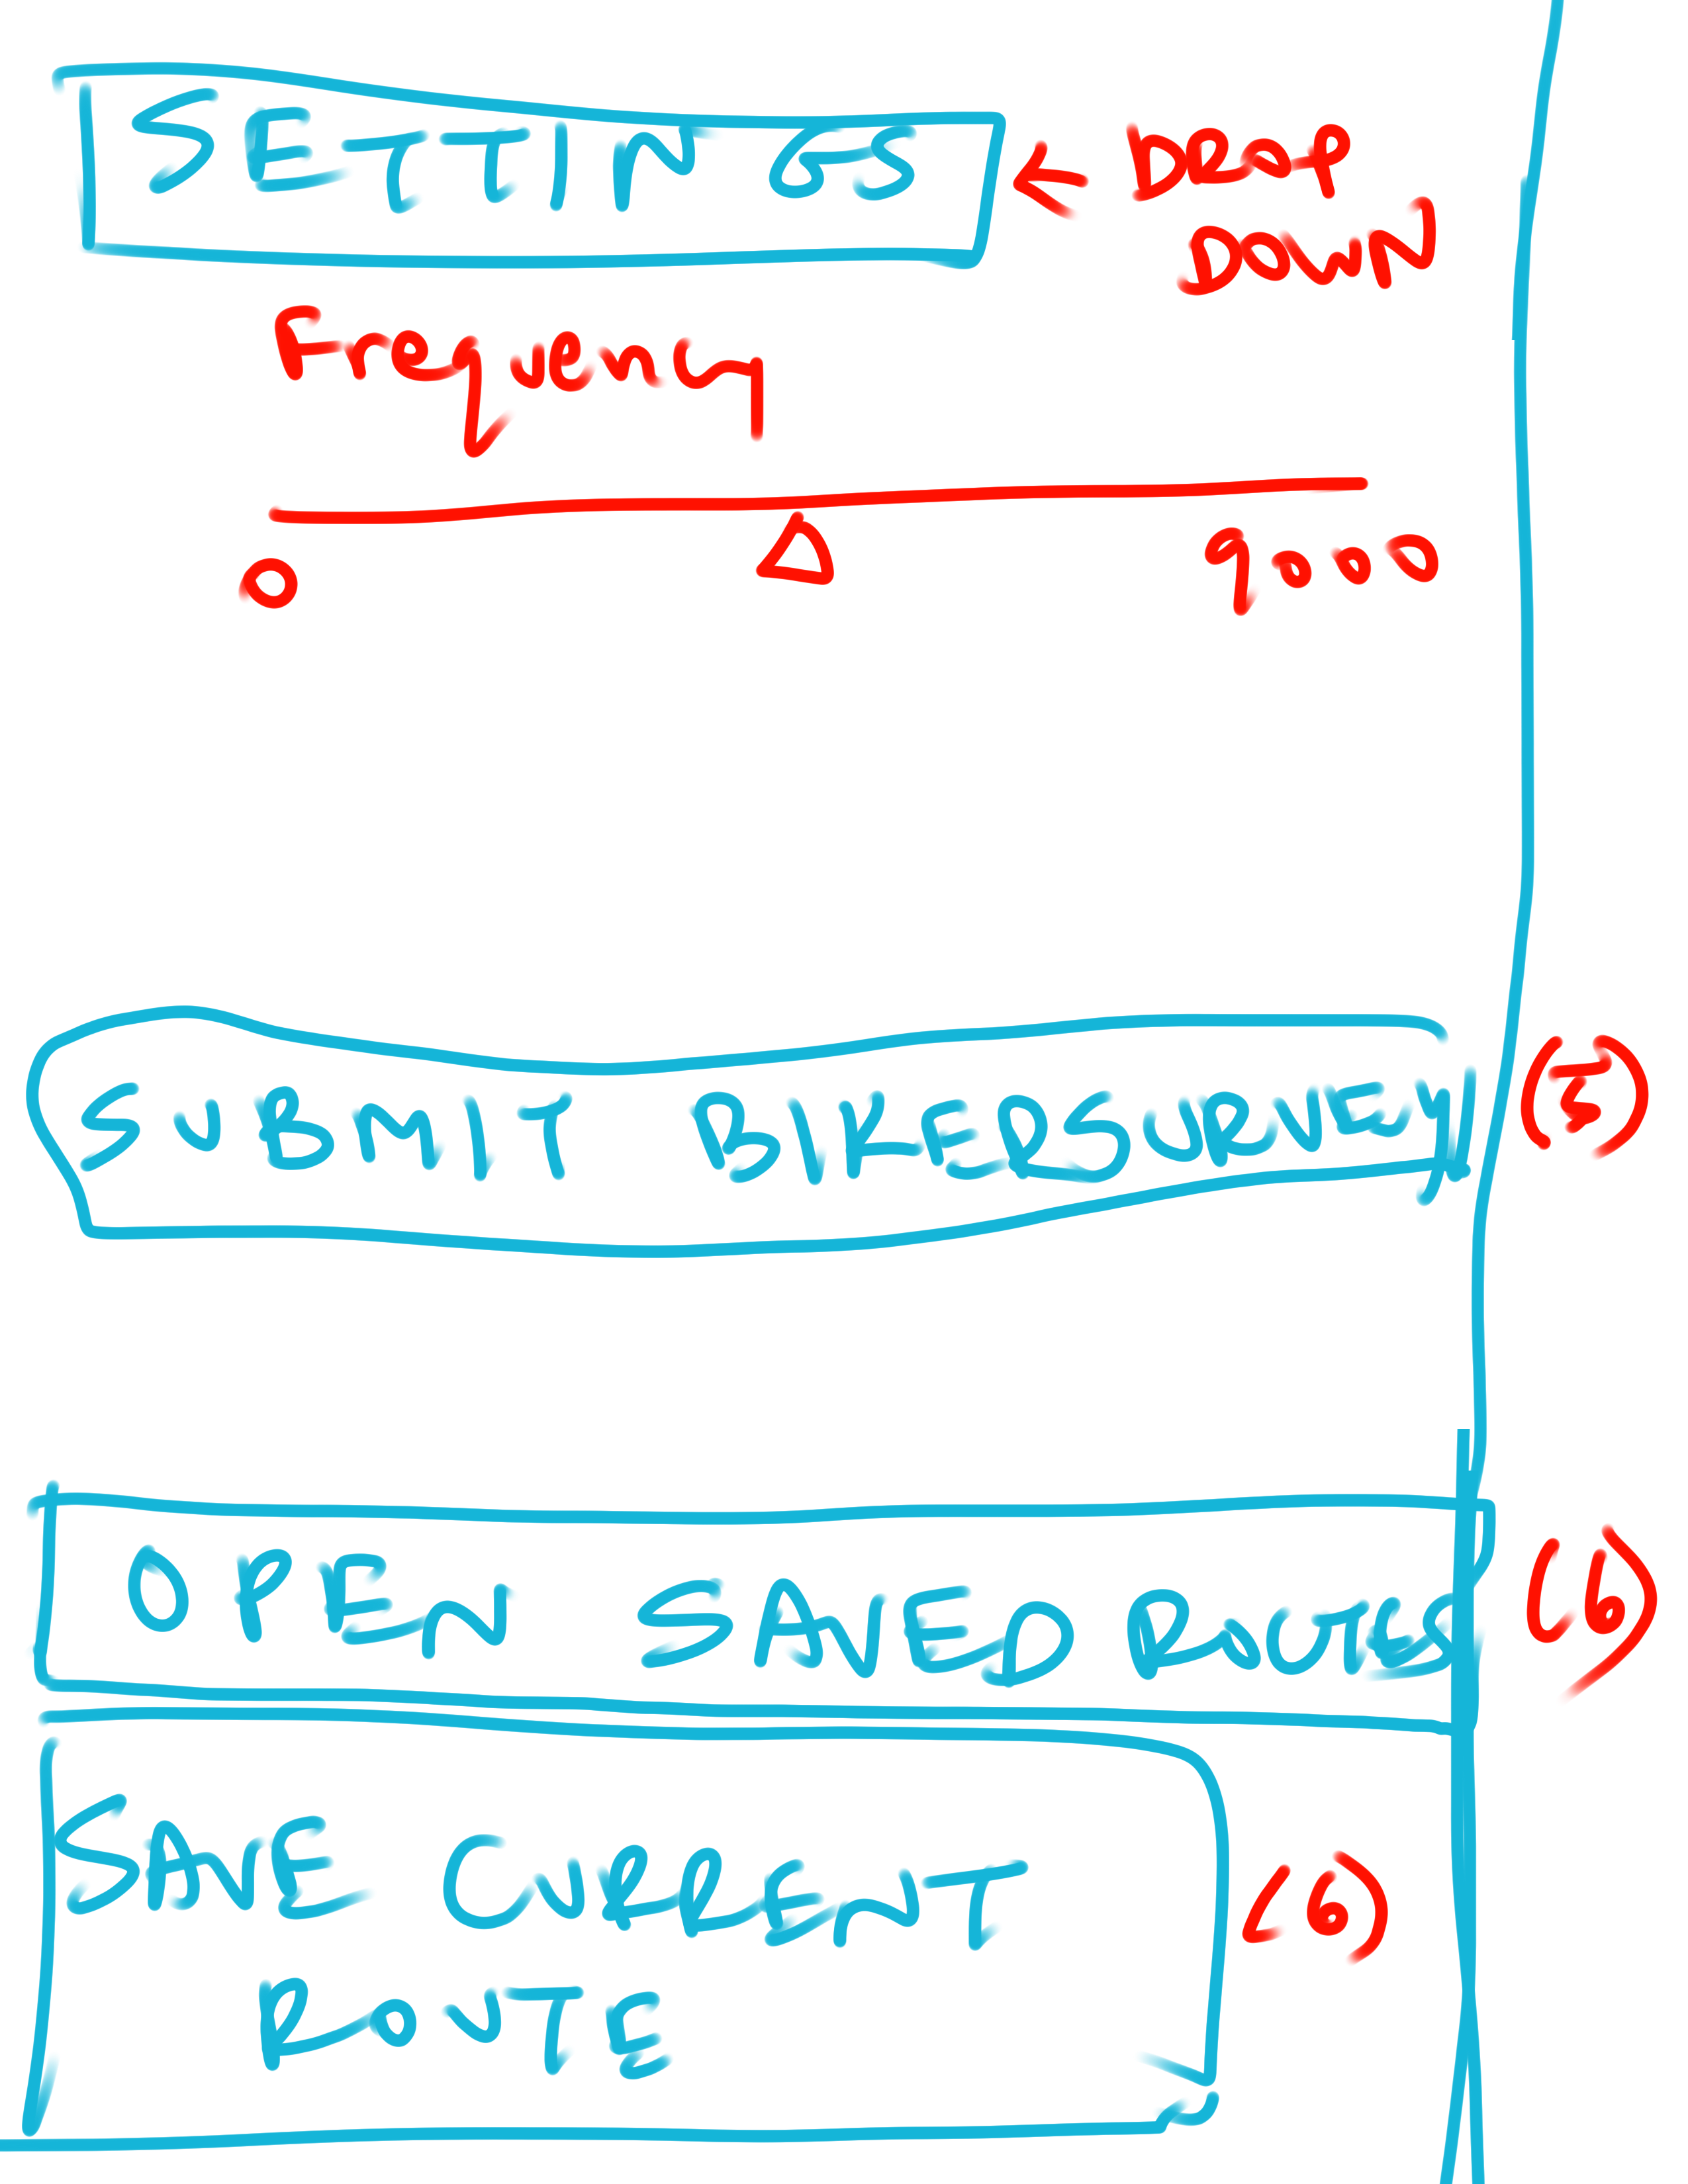 SETTINGS ← DROP
DOWN
Frequency
0 9000
SUBMIT BIKERSURVEY (5)
OPEN SAVED ROUTES (6)
SAVE CURRENT (6)
ROUTE